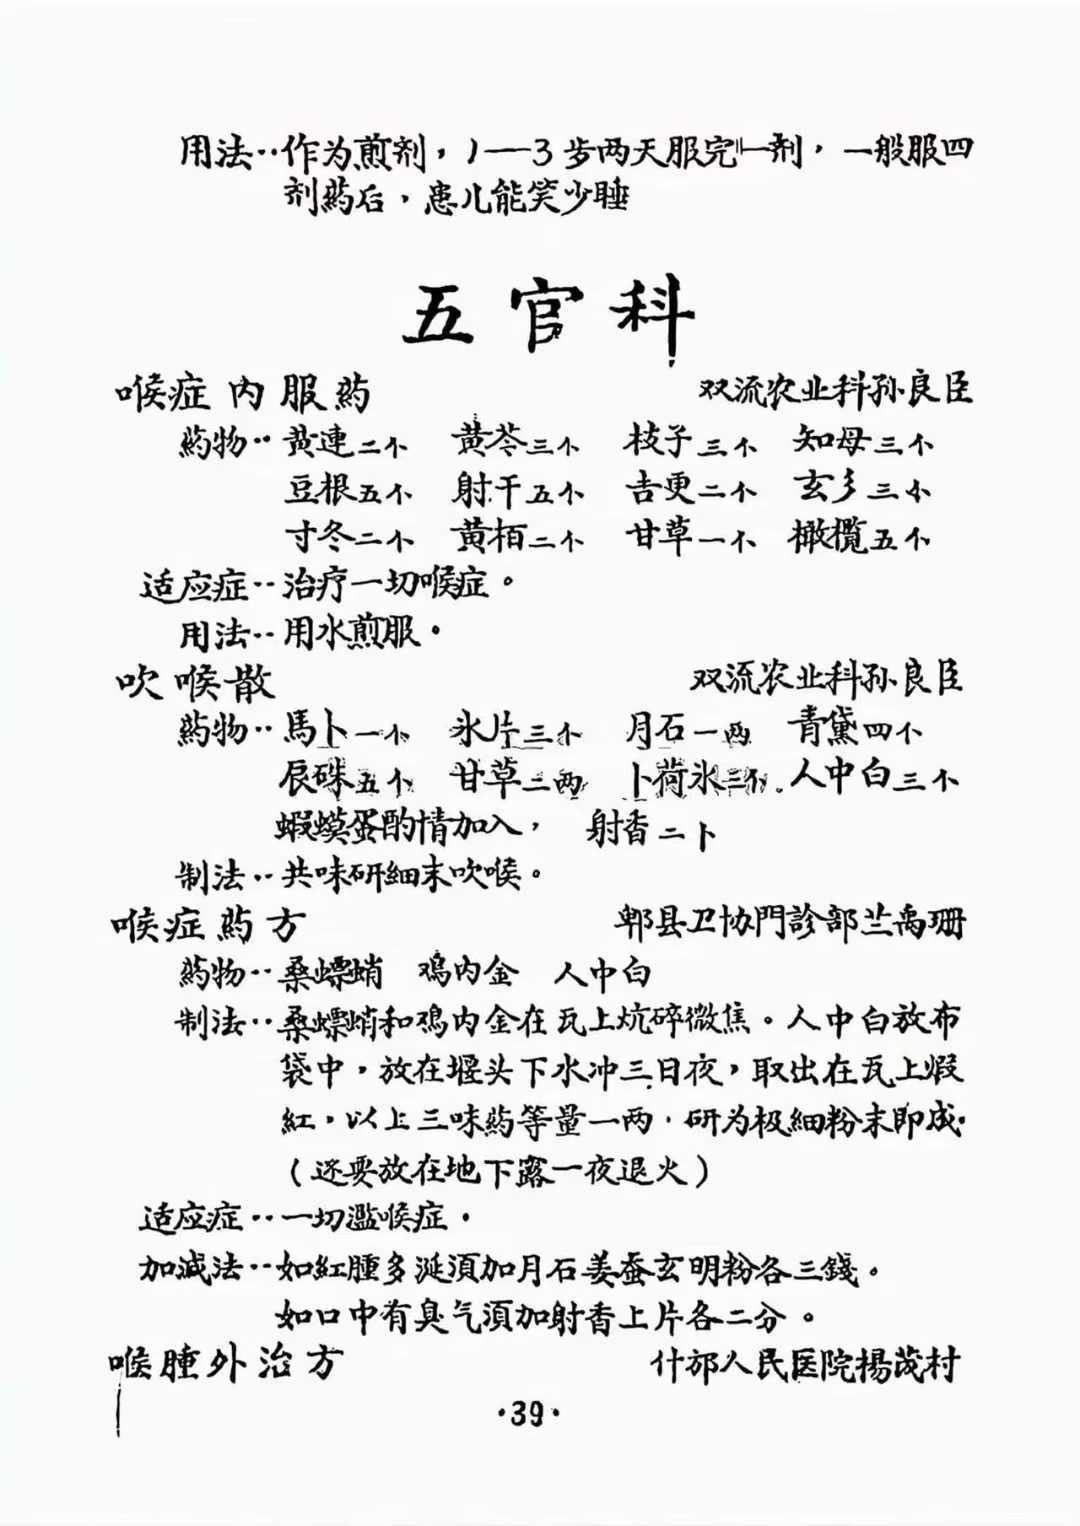 用法··作为煎剂，1—3步两天服完一剂，一般服四
剂药后，患儿能笑少睡
五官科
喉症内服药 双流农业科孙良臣
药物··黄連二个 黄芩三个 枝子三个 知母三个
豆根五个 射干五个 吉更二个 玄彡三个
寸冬二个 黄栢二个 甘草一个 橄榄五个
适应症··治疗一切喉症。
用法··用水煎服。
吹喉散 双流农业科孙良臣
药物··馬卜一个 氷片三个 月石一两 青黛四个
辰硃五个 甘草三两 卜荷氷三个. 人中白三个
蝦蟆蛋酌情加入， 射香二卜
制法··共味研細末吹喉。
喉症药方 郫县卫协門診部兰禹珊
药物··桑螵蛸 鸡内金 人中白
制法··桑螵蛸和鸡内金在瓦上炕碎微焦。人中白放布
袋中，放在堰头下水冲三日夜，取出在瓦上煅
紅，以上三味药等量一两．研为极細粉末即成．
（还要放在地下露一夜退火）
适应症··一切濫喉症．
加减法··如紅腫多涎須加月石姜蚕玄明粉各三錢。
如口中有臭气須加射香上片各二分。
喉腫外治方 什邡人民医院揚茂村
·39·